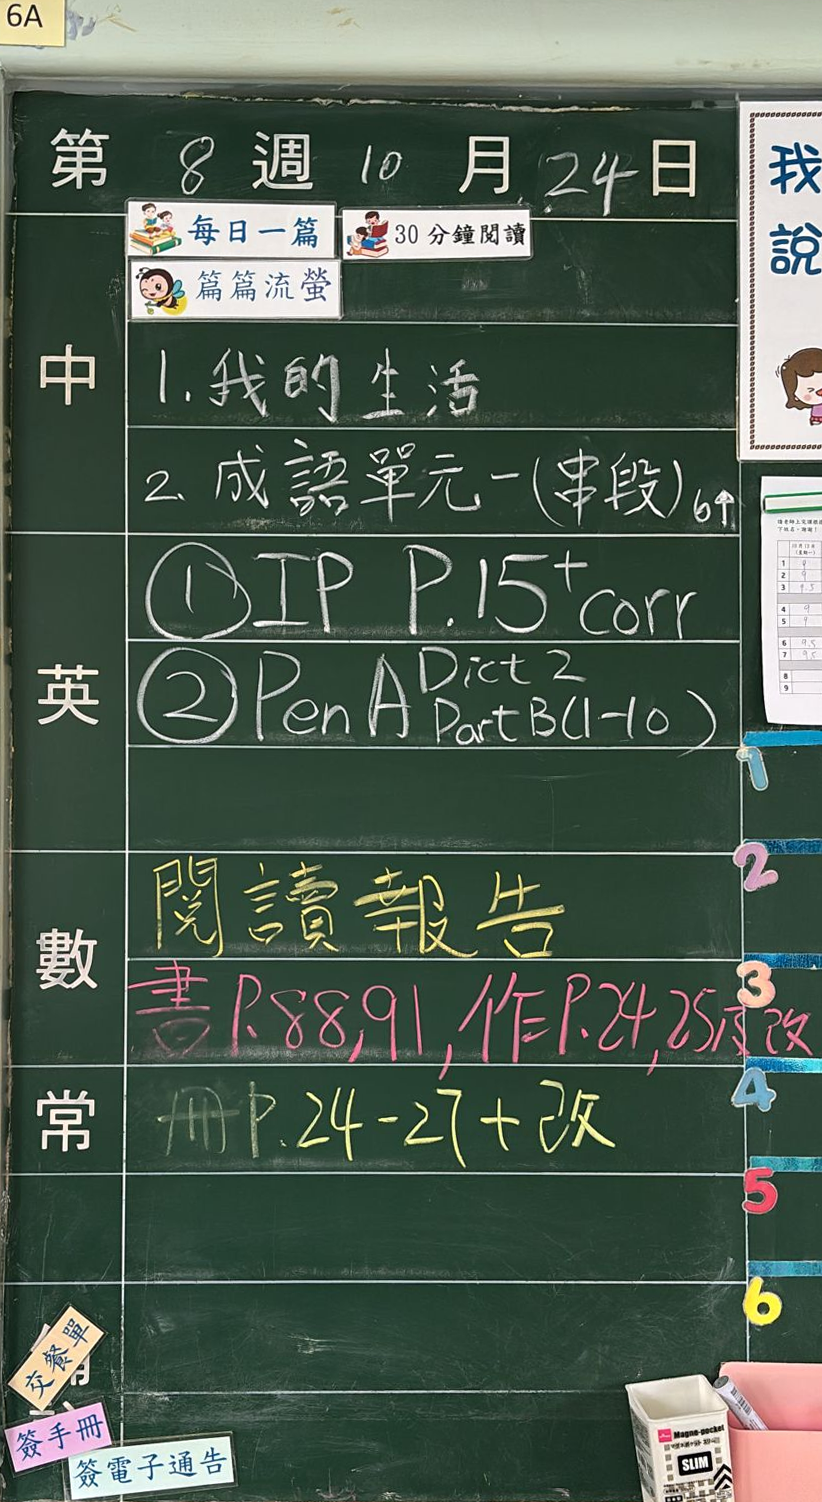 6A
第 8 週 10 月 24 日
每日一篇 30分鐘閱讀
篇篇流螢
中
1. 我的生活
2. 成語單元一(串段)6↑
英
① IP P.15+corr
② Pen A Dict 2
Part B(1-10)
數
閱讀報告
書P.88,91,作P.24,25及改
常
冊P.24-27+改
交餐單
簽手冊
簽電子通告
我
說
10月13日
1
2
3
4
5
6
7
8
9
1
2
3
4
5
6
Magna-pocket
SLIM